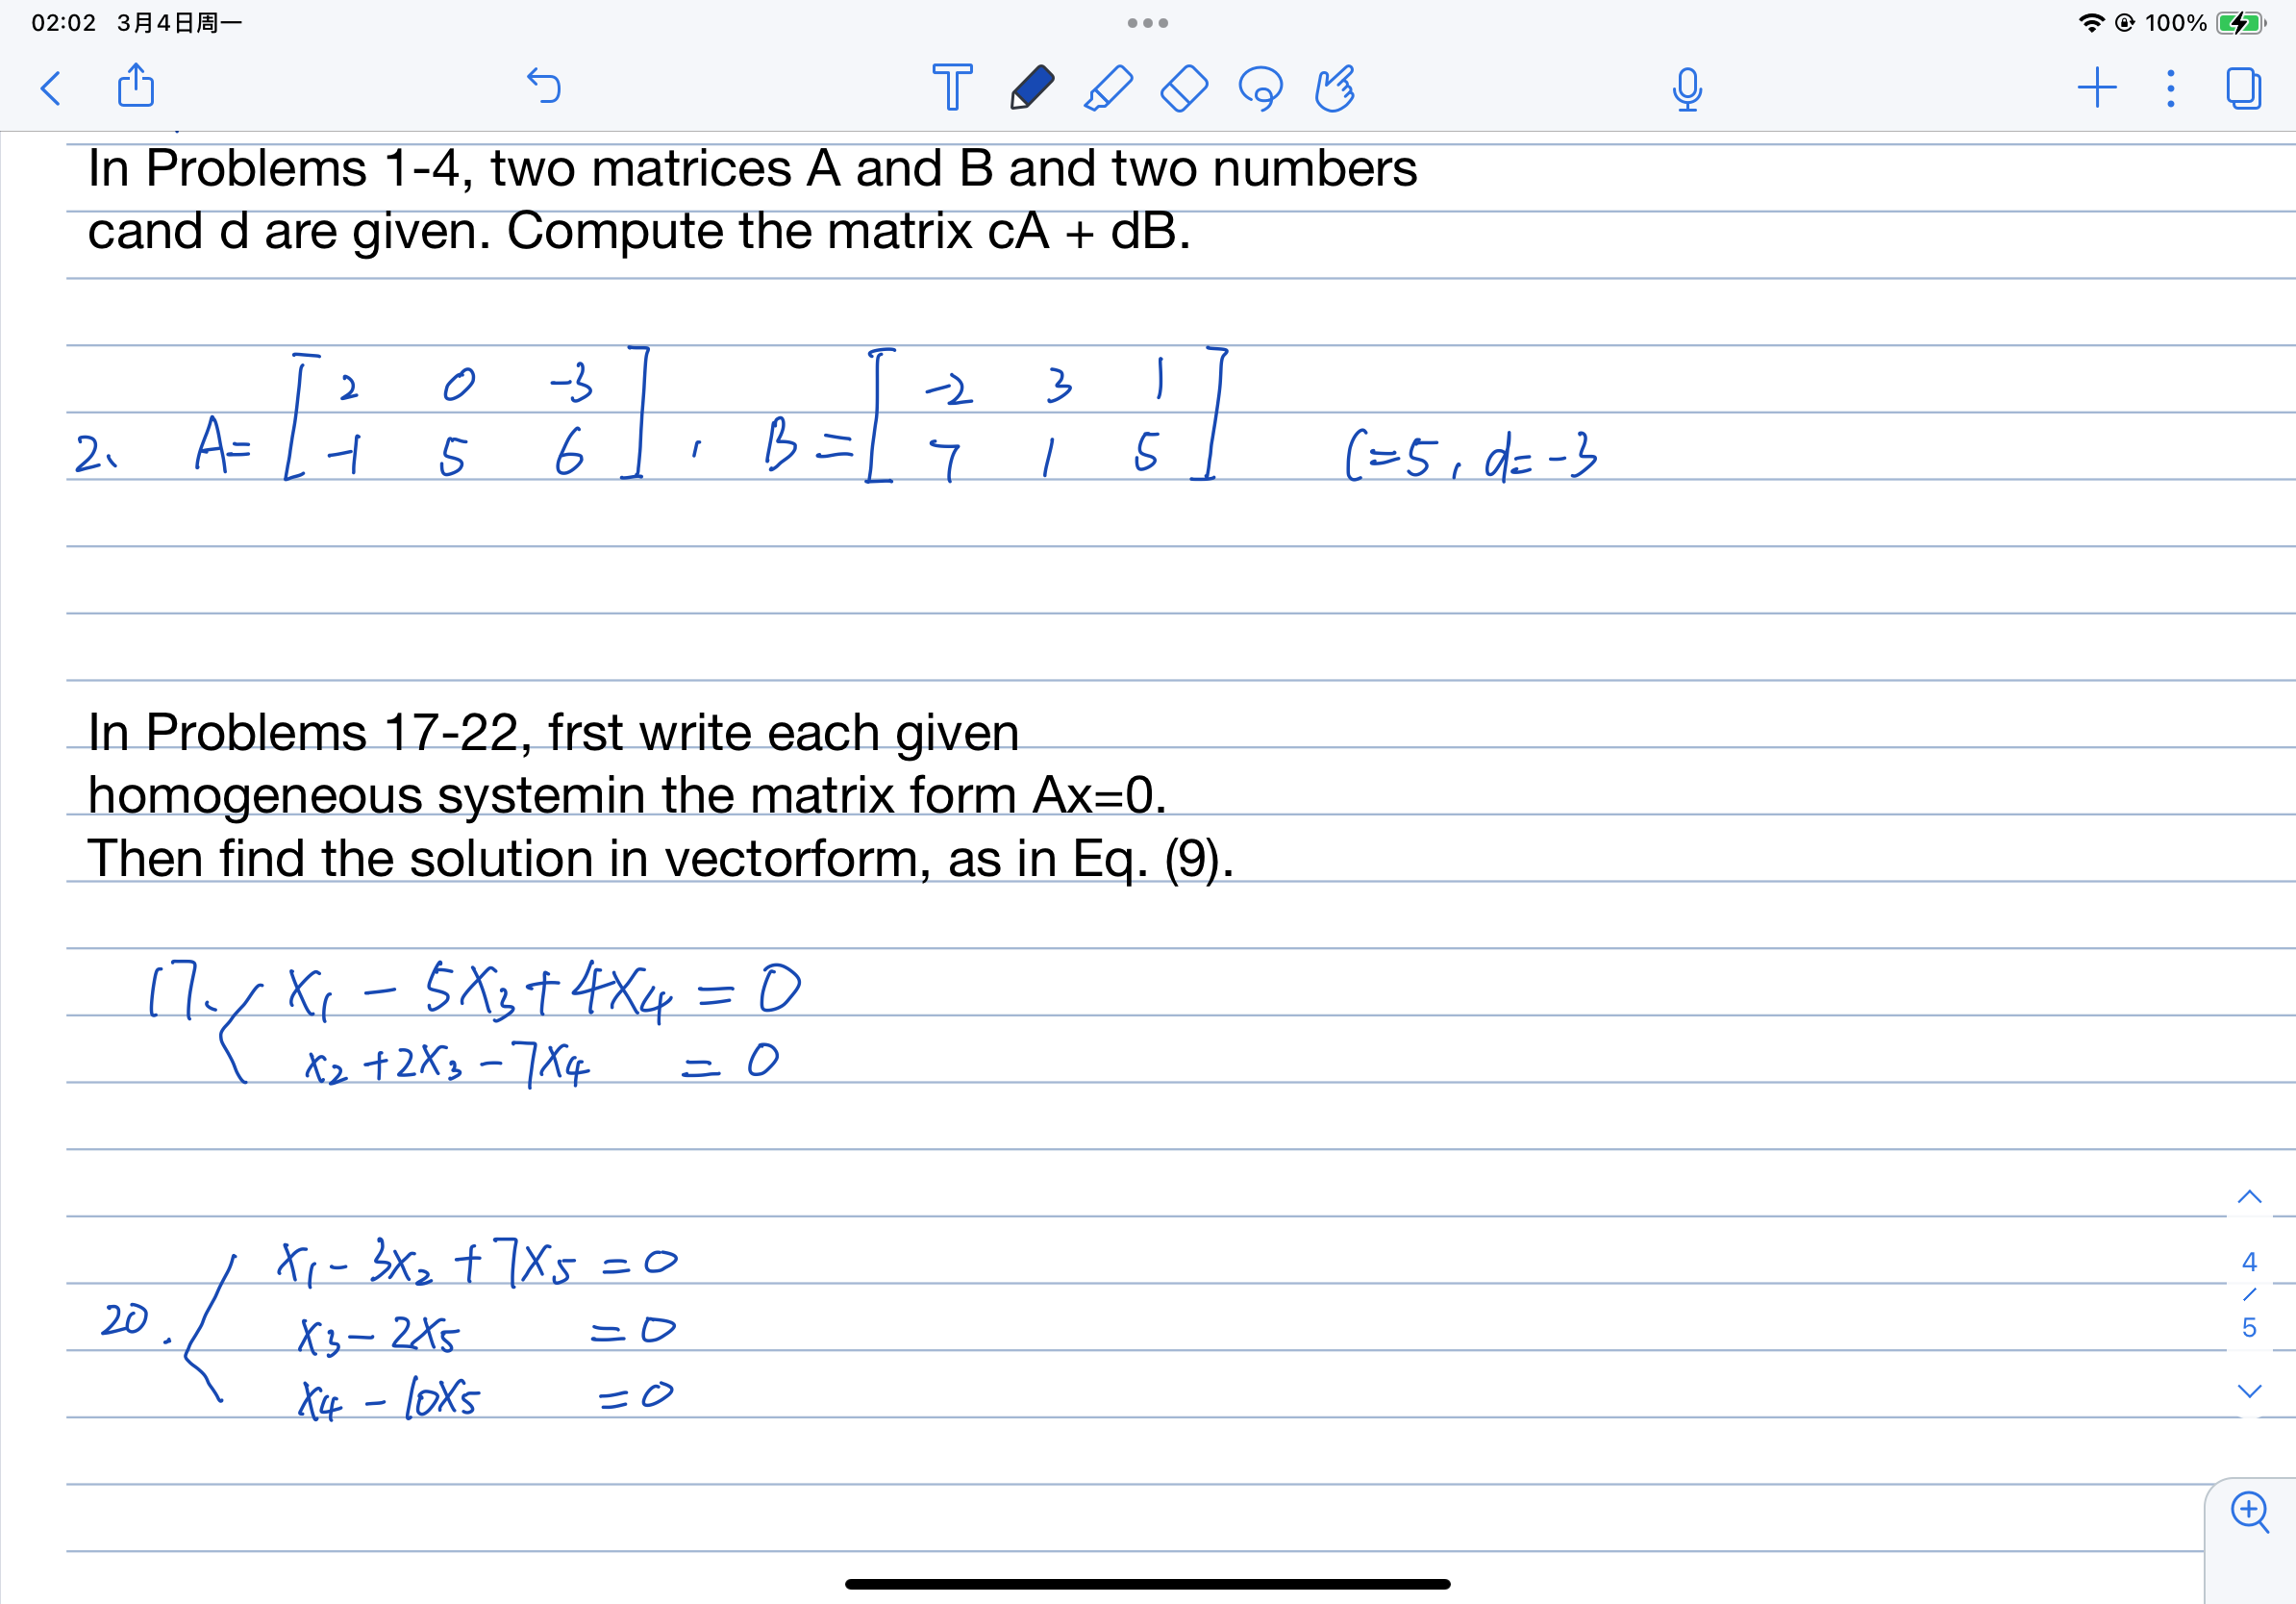 02:02 3月4日周一
100%
In Problems 1-4, two matrices A and B and two numbers
cand d are given. Compute the matrix cA + dB.
2、 A= [2 0 -3; -1 5 6] , B = [-2 3 1; 7 1 5] C=5, d=-3
In Problems 17-22, frst write each given
homogeneous systemin the matrix form Ax=0.
Then find the solution in vectorform, as in Eq. (9).
17. x₁ - 5x₃ + 4x₄ = 0
x₂ + 2x₃ - 7x₄ = 0
20. x₁ - 3x₂ + 7x₅ = 0
x₃ - 2x₅ = 0
x₄ - 10x₅ = 0
4
/
5